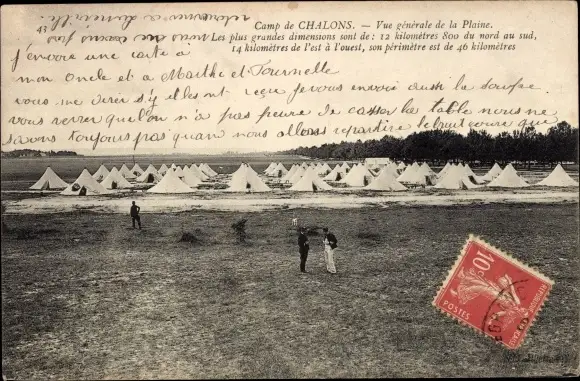 43
Camp de CHALONS. — Vue générale de la Plaine.
Les plus grandes dimensions sont de : 12 kilomètres 800 du nord au sud,
14 kilomètres de l'est à l'ouest, son périmètre est de 46 kilomètres
j'envoie une carte à
mon Oncle et a Marthe et Tournelle
vous me direz s'y elles ont reçu je vous envoi aussi la soupe
vous verrer quellon n'a pas peure de casser la table nous ne
savons toujours pas quan nous allons repartire le bruit coure que
10c